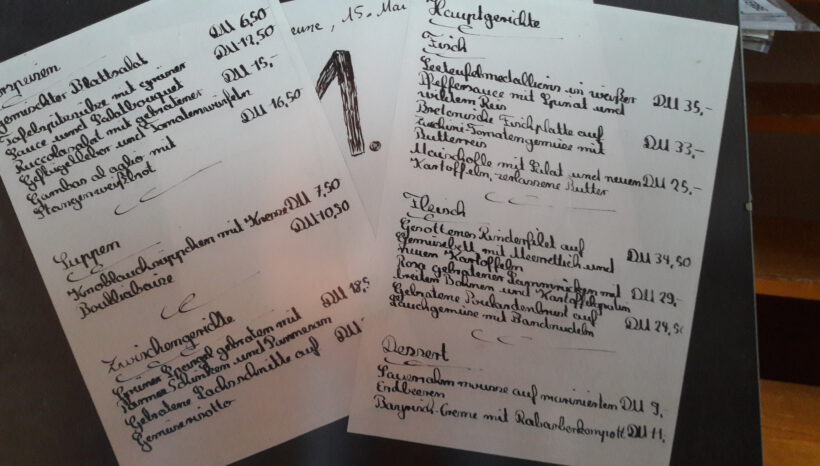 gemischter Blattsalat DM 6,50
Tafelspitzsülze mit grüner DM 12,50
Sauce und Salatbouquet
Ruccolasalat mit gebratener DM 15,-
Geflügelleber und Tomatenwürfeln
Gambas al ajho mit DM 16,50
Stangenweißbrot
Suppen
Knoblauchsüppchen mit Kresse DM 7,50
Boulliabaise DM 10,50
Zwischengerichte
Grüner Spargel gebraten mit DM 18,5
Parma Schinken und Parmesan
Gebratene Lachsschnitte auf DM
Gemüserisotto
, 15. Mai
1.
Hauptgerichte
Fisch
Seeteufelmedallions in weißer DM 35,-
Pfeffersauce mit Spinat und
wildem Reis
Bretonische Fischplatte auf DM 33,-
Zucchini-Tomatengemüse mit
Butterreis
Maischolle mit Salat und neuen DM 25,-
Kartoffeln, zerlassene Butter
Fleisch
Gesottenes Rinderfilet auf DM 34,50
Gemüsebett mit Meerrettich und
neuen Kartoffeln
Rosa gebratener Lammrücken mit DM 29,-
breiten Bohnen und Kartoffelgratin
Gebratene Poulardenbrust auf DM 24,50
Lauchgemüse mit Bandnudeln
Dessert
Sauerrahmmousse auf marinierten DM 9,-
Erdbeeren
Bayrisch-Creme mit Rabarberkompott DM 11,